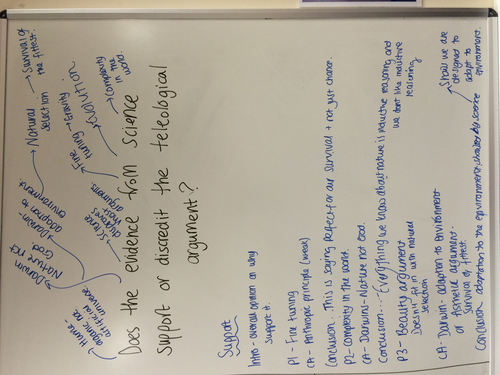 Survival of
the fittest.
Natural
Selection
Darwin
Nature not
God
Darwin-
adaption to
environment.
Science
disproves
most
arguments
Fine
tuning
Gravity
evolution
Complexity
in the
world.
Hume-
organic not
artificial
universe
Does the evidence from science
support or discredit the teleological
argument?
Support
Intro - overall opinion on why
support it.
P1 - Fine tuning
CA - Anthropic principle (weak)
Conclusion... This is saying perfect for our survival + not just chance.
P2 - complexity in the world.
CA - Darwins - Nature not God.
Conclusion... Everything we know about nature is inductive reasoning and
we dont like inductive
reasoning
P3 - Beauty argument
Doesn't fit in with natural
selection
CA - Darwin - adaption to environment
or Asthetic argument -
Survival of fittest.
Shows we are
designed to
adapt to
environment.
Conclusion adaptation to the environment, by science